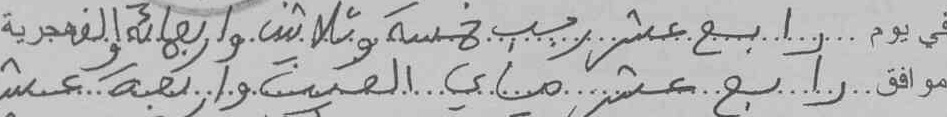 في يوم رابع عشر رجب خمسة وثلاثين واربعمائة والف هجرية
موافق رابع عشر ماي الفين واربعة عشر